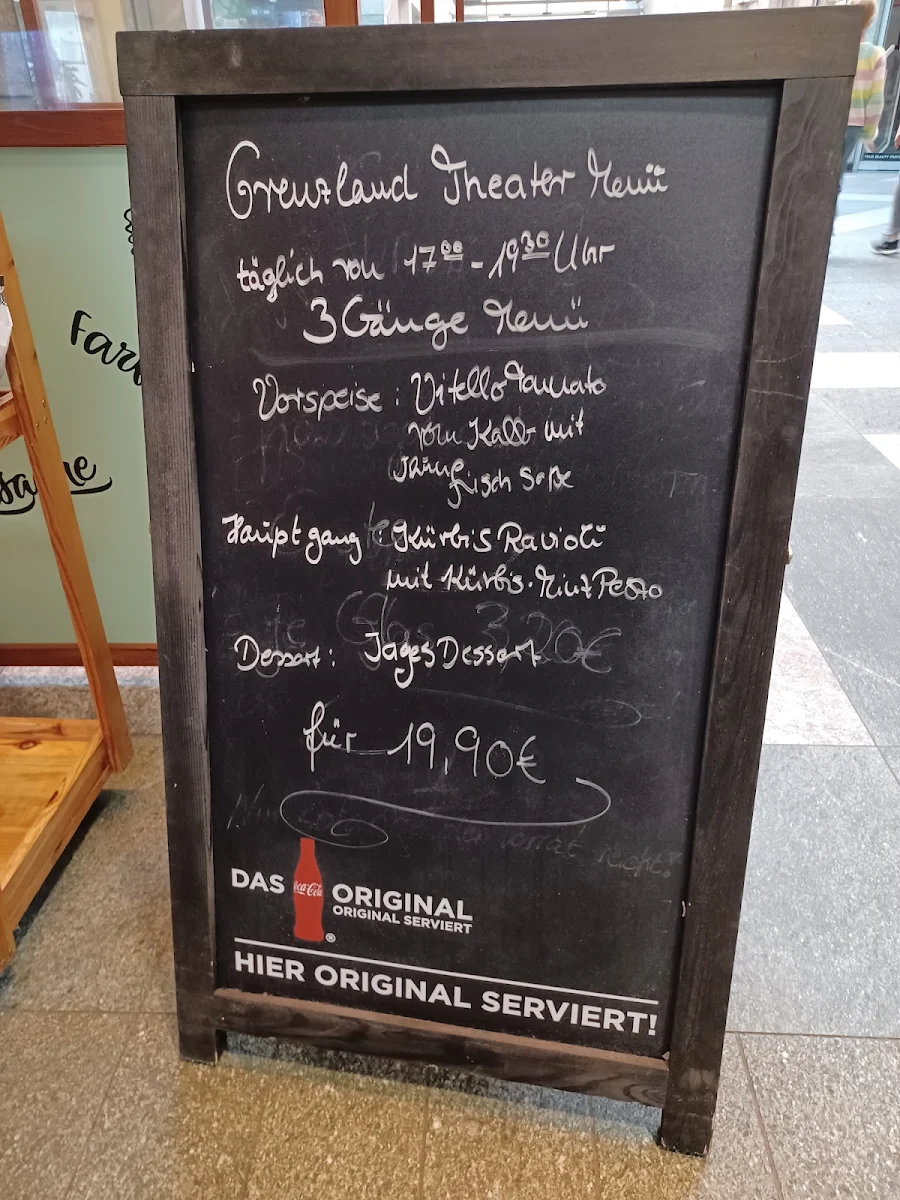 Grenzland Theater Menü
täglich von 17⁰⁰ - 19³⁰ Uhr
3 Gänge Menü
Vorspeise : Vitello Tonnato
vom Kalb mit
Thunfisch Soße
Hauptgang : Kürbis Ravioli
mit Kürbis-Minz Pesto
Dessert : Tages Dessert
für 19,90€
3,20€
vorrat reicht!
DAS Coca-Cola ORIGINAL
ORIGINAL SERVIERT
HIER ORIGINAL SERVIERT!